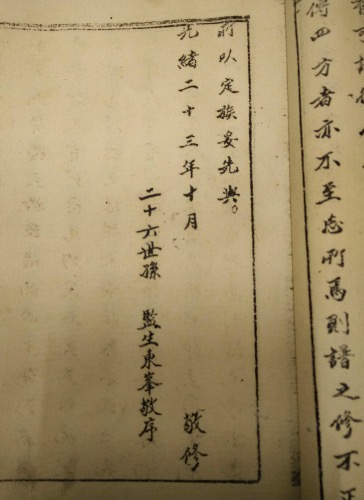 傳四方者亦不至忘所焉則譜之修不
所以定族妥先與。
光緒二十三年十月 敬修
二十六世孫 監生東峯敬序